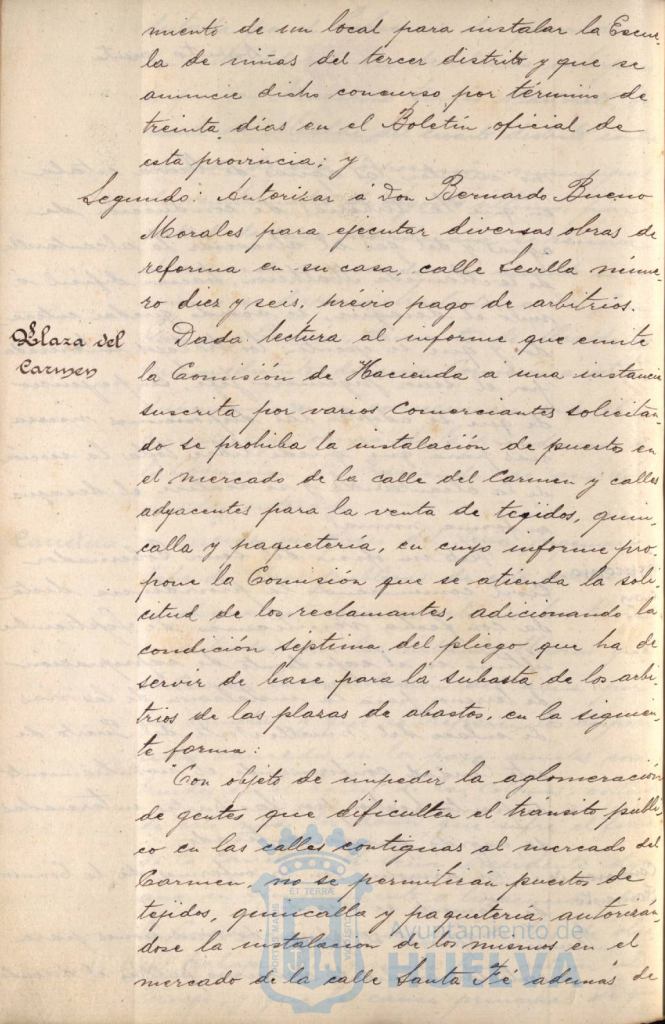 miento de un local para instalar la Escue-
la de niñas del tercer distrito y que se
anuncie dicho concurso por término de
treinta días en el Boletín oficial de
esta provincia; y
Segundo: Autorizar á Don Bernardo Bueno
Morales para ejecutar diversas obras de
reforma en su casa, calle Sevilla núme-
ro diez y seis, prévio pago de arbitrios.
Plaza del
Carmen
Dada lectura al informe que emite
la Comisión de Hacienda a una instancia
suscrita por varios comerciantes solicitan-
do se prohiba la instalación de puestos en
el mercado de la calle del Carmen y calles
adyacentes para la venta de tegidos, quin-
calla y paquetería, en cuyo informe pro-
pone la Comisión que se atienda la soli-
citud de los reclamantes, adicionando la
condición séptima del pliego que ha de
servir de base para la subasta de los arbi-
trios de las plazas de abastos, en la siguien-
te forma:
"Con objeto de impedir la aglomeración
de gentes que dificulten el tránsito públi-
co en las calles contiguas al mercado del
Carmen, no se permitirán puestos de
tejidos, quincalla y paquetería, autorizán-
dose la instalación de los mismos en el
mercado de la calle Santa Fé además de
Ayuntamiento de
HUELVA